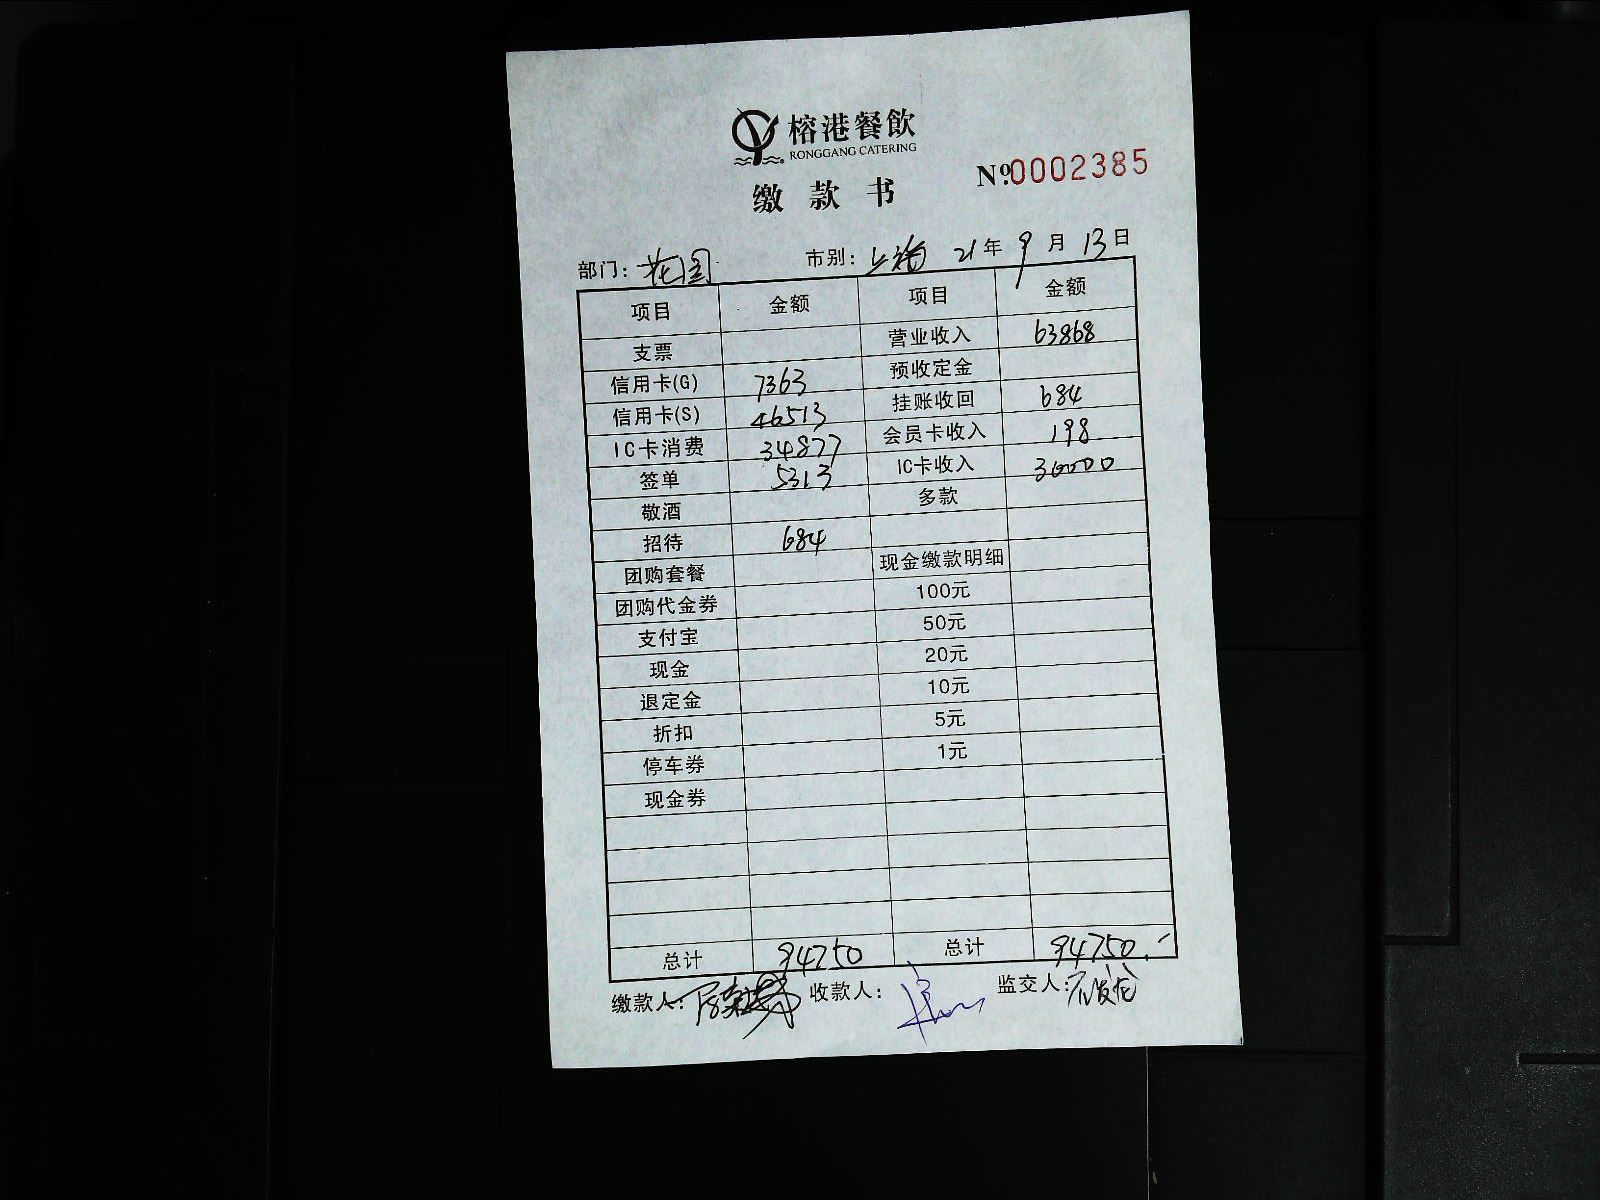 榕港餐飲
RONGGANG CATERING
缴款书
№0002385
部门：花园 市别：上海 21年9月13日
项目 金额 项目 金额
支票 营业收入 63868
信用卡(G) 7363 预收定金
信用卡(S) 46513 挂账收回 684
IC卡消费 34877 会员卡收入 198
签单 5313 IC卡收入 30000
敬酒 多款
招待 684
团购套餐 现金缴款明细
团购代金券 100元
支付宝 50元
现金 20元
退定金 10元
折扣 5元
停车券 1元
现金券
总计 94750 总计 94750.-
缴款人： 收款人： 监交人：